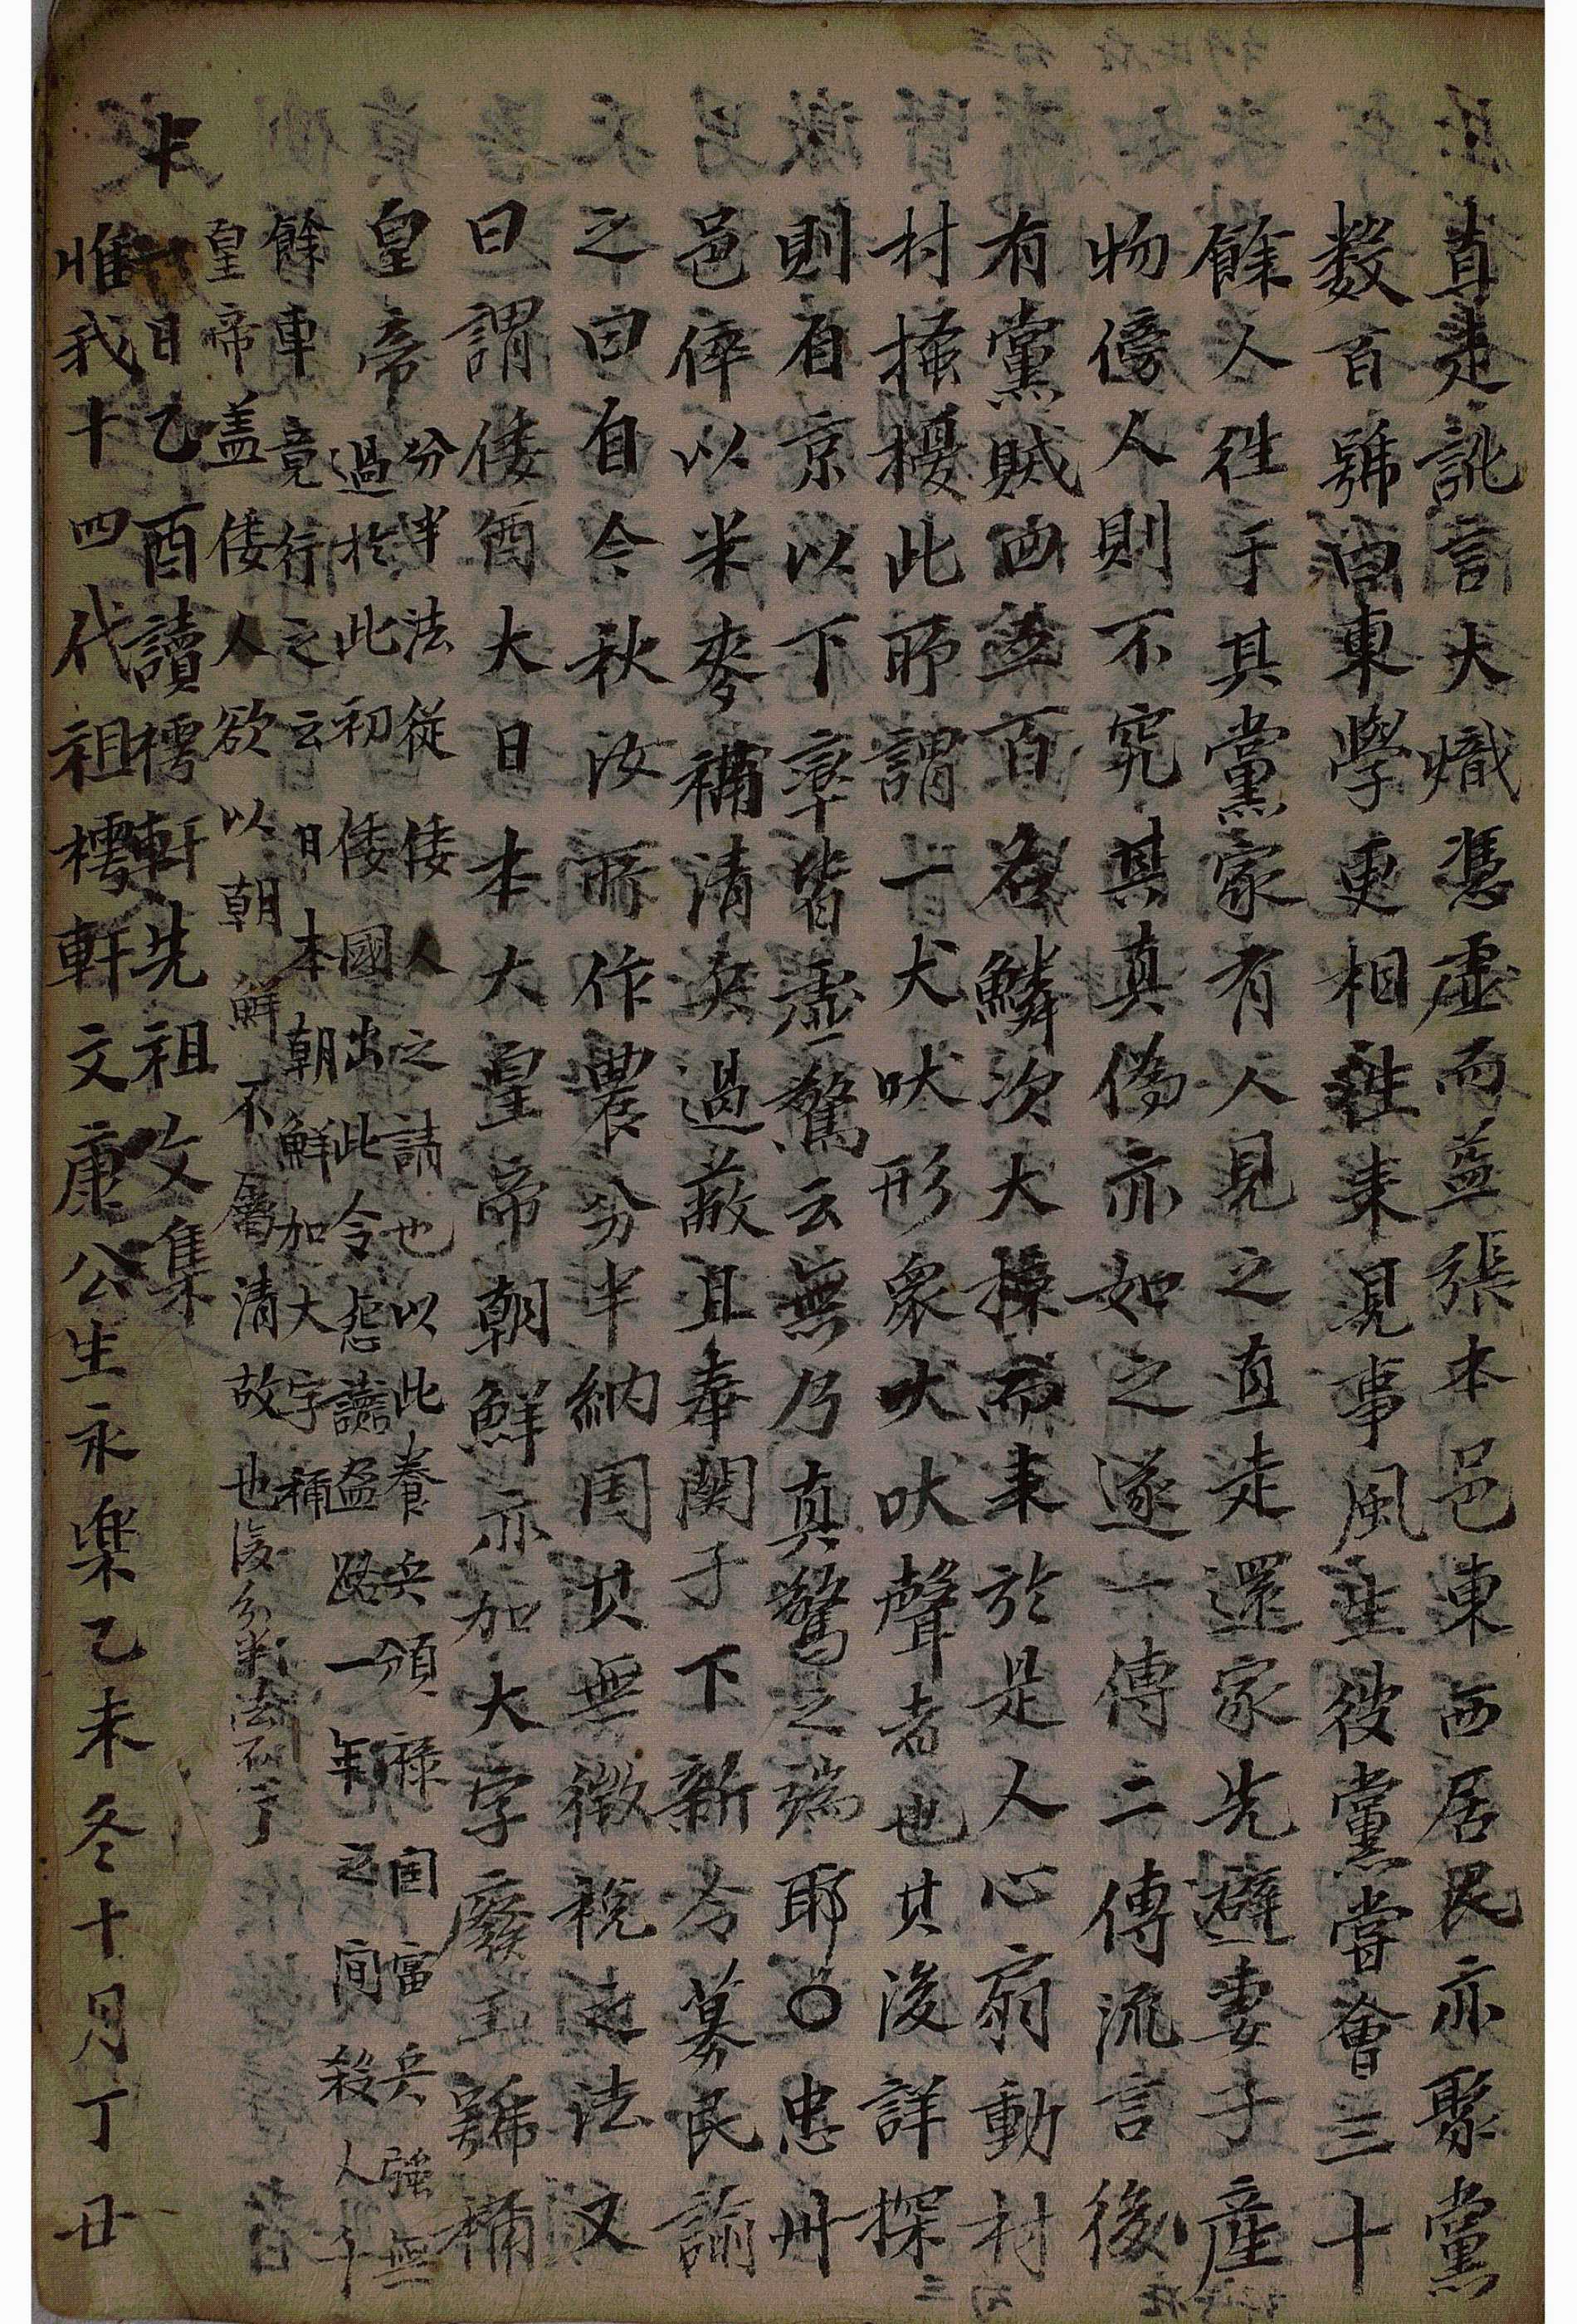 直走訛言大熾憑虛而益張本邑東西居民亦聚黨
數百號曰東學更相往来見事風生彼黨嘗會三十
餘人徃于其黨家有人見之直走還家先避妻子産
物傍人則不究其真偽亦如之遂一傳二傳流言後
有黨賊四五百名鱗次大操而来於是人心扇動村
村搔擾此所謂一犬吠形衆犬吠聲者也其後詳探
則自京以下率皆虛驚云無乃真驚之端耶○忠州
邑倅以米麥犒清兵過蔽且奉関于下新令募民諭
之曰自今秋汝所作農分半納国其無徵稅之法又
曰謂倭酋大日本大皇帝朝鮮亦加大字廢王號稱
皇帝
分半法從倭人之請也以此養兵頒祿国富兵強無
過於此初倭國出此令怨讟盈路一年之間殺人千
餘車竟行之云日本朝鮮加大字稱
皇帝盖倭人欲以朝鮮不屬清故也後分半法不了
十一日乙酉讀樗軒先祖文集
惟我十四代祖樗軒文康公生永樂乙未冬十月丁丑